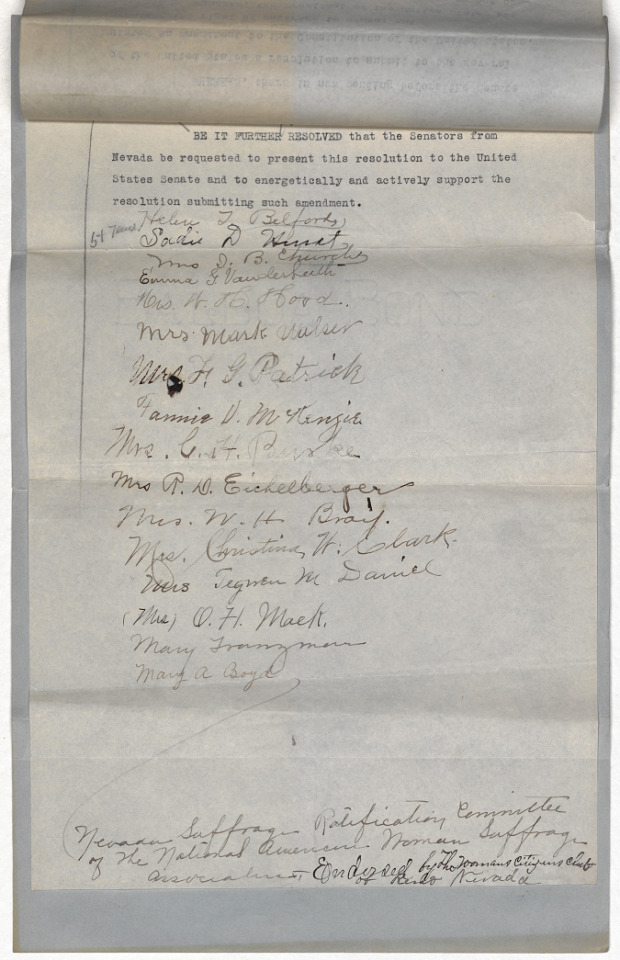 BE IT FURTHER RESOLVED that the Senators from
Nevada be requested to present this resolution to the United
States Senate and to energetically and actively support the
resolution submitting such amendment.
Helen T. Belford
Sadie D Hurst
Mrs J. B. Church
Emma F. Vanderlieth
Mrs. W. H. Hood.
Mrs. Mark Walser
Mrs F. G. Patrick
Fannie D. McKenzie
Mrs. C. H. Burke
Mrs R. D. Eichelberger
Mrs. W. H. Bray.
Mrs. Christina W. Clark.
Mrs Tegwen M Daniel
(Mrs) O. H. Mack.
Mary Franzman
Mary A Boyd
Nevada Suffrage Ratification Committee
of The National American Woman Suffrage
Association, Endorsed by The Womans Citizens Club
of Reno Nevada